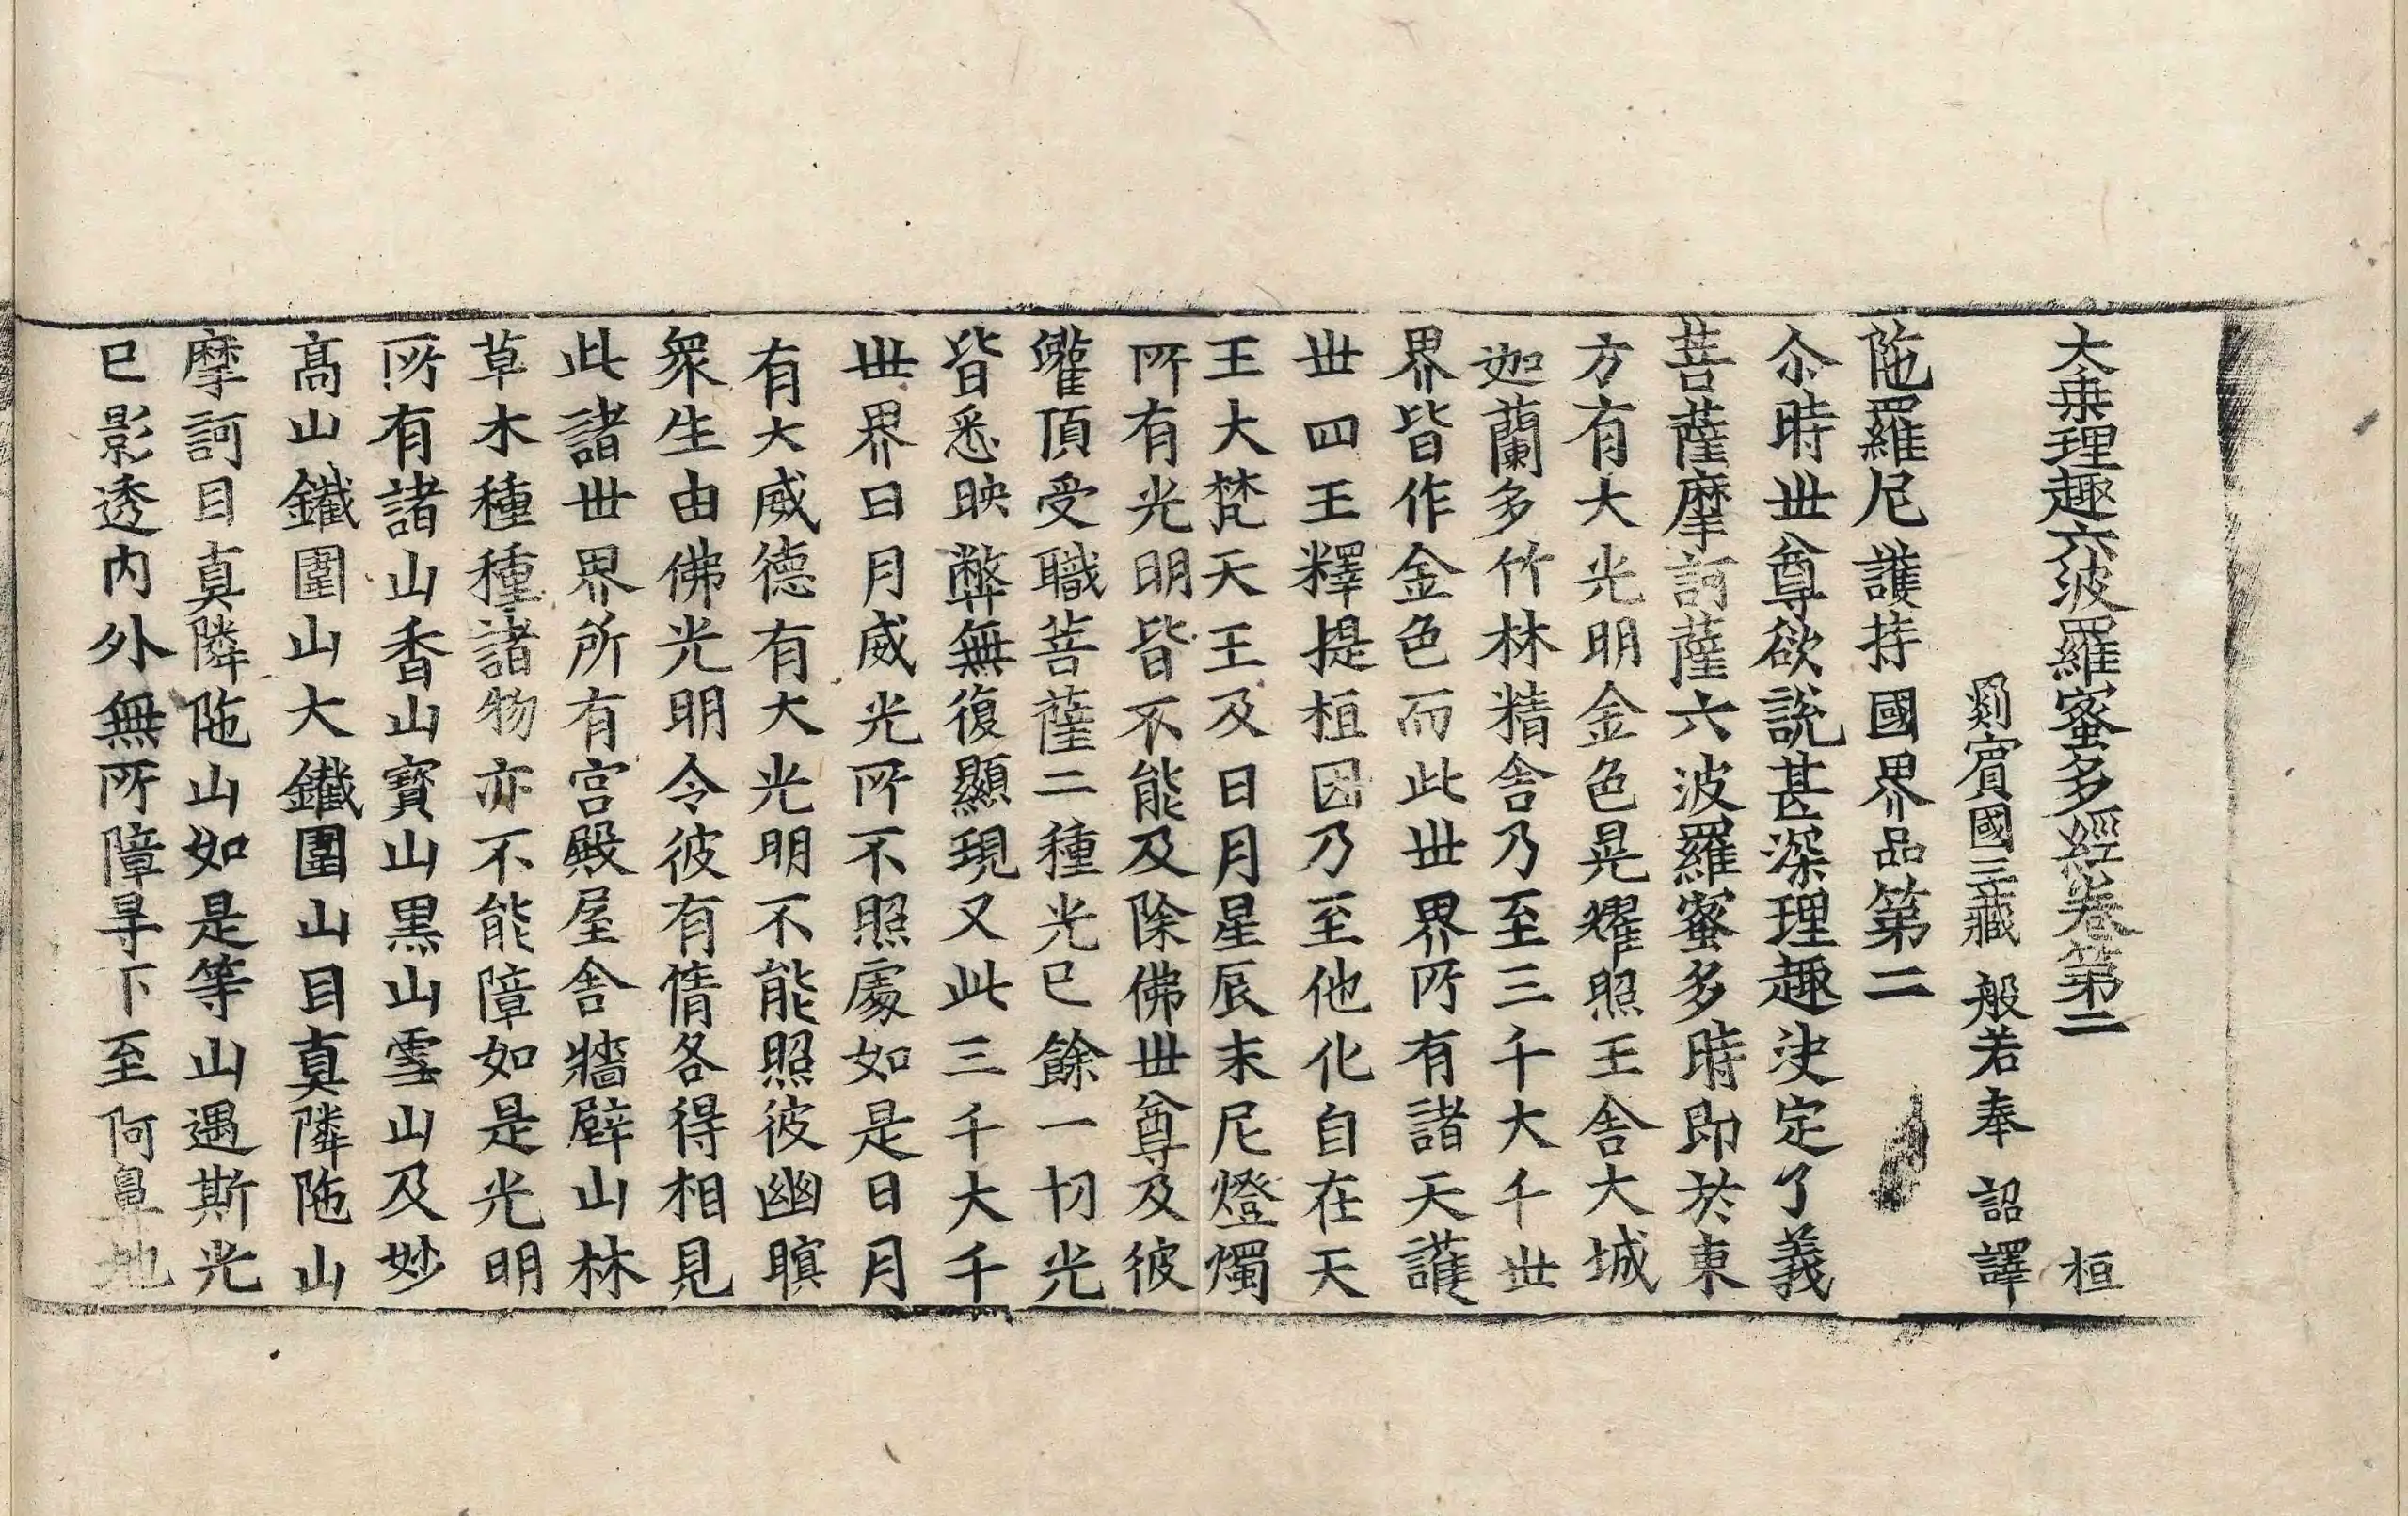 大乗理趣六波羅蜜多經卷第二　桓
罽賓國三藏　般若奉　詔譯
陁羅尼護持國界品第二
尒時世尊欲説甚深理趣決定了義
菩薩摩訶薩六波羅蜜多時即於東
方有大光明金色晃耀照王舍大城
迦蘭多竹林精舍乃至三千大千世
界皆作金色而此世界所有諸天護
世四王釋提桓因乃至他化自在天
王大梵天王及日月星辰末尼燈燭
所有光明皆不能及除佛世尊及彼
灌頂受職菩薩二種光已餘一切光
皆悉映弊無復顯現又此三千大千
世界日月威光所不照處如是日月
有大威德有大光明不能照彼幽瞑
衆生由佛光明令彼有情各得相見
此諸世界所有宫殿屋舍牆壁山林
草木種種諸物亦不能障如是光明
所有諸山香山寶山黒山雪山及妙
髙山鐵圍山大鐵圍山目真隣陁山
摩訶目真隣陁山如是等山遇斯光
已影透内外無所障㝵下至阿鼻地